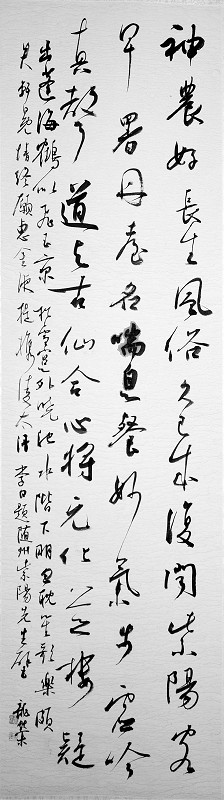 神農好長生風俗久已成復聞紫陽客
早署丹臺名喘息餐妙氣步虛吟
真聲道與古仙合心將元化並樓疑
出蓬海鶴似飛玉京松雪窗外曉池水階下明忽耽笙歌樂頗
失軒冕情終願惠金液提攜凌太清李白題隨州紫陽先生壁